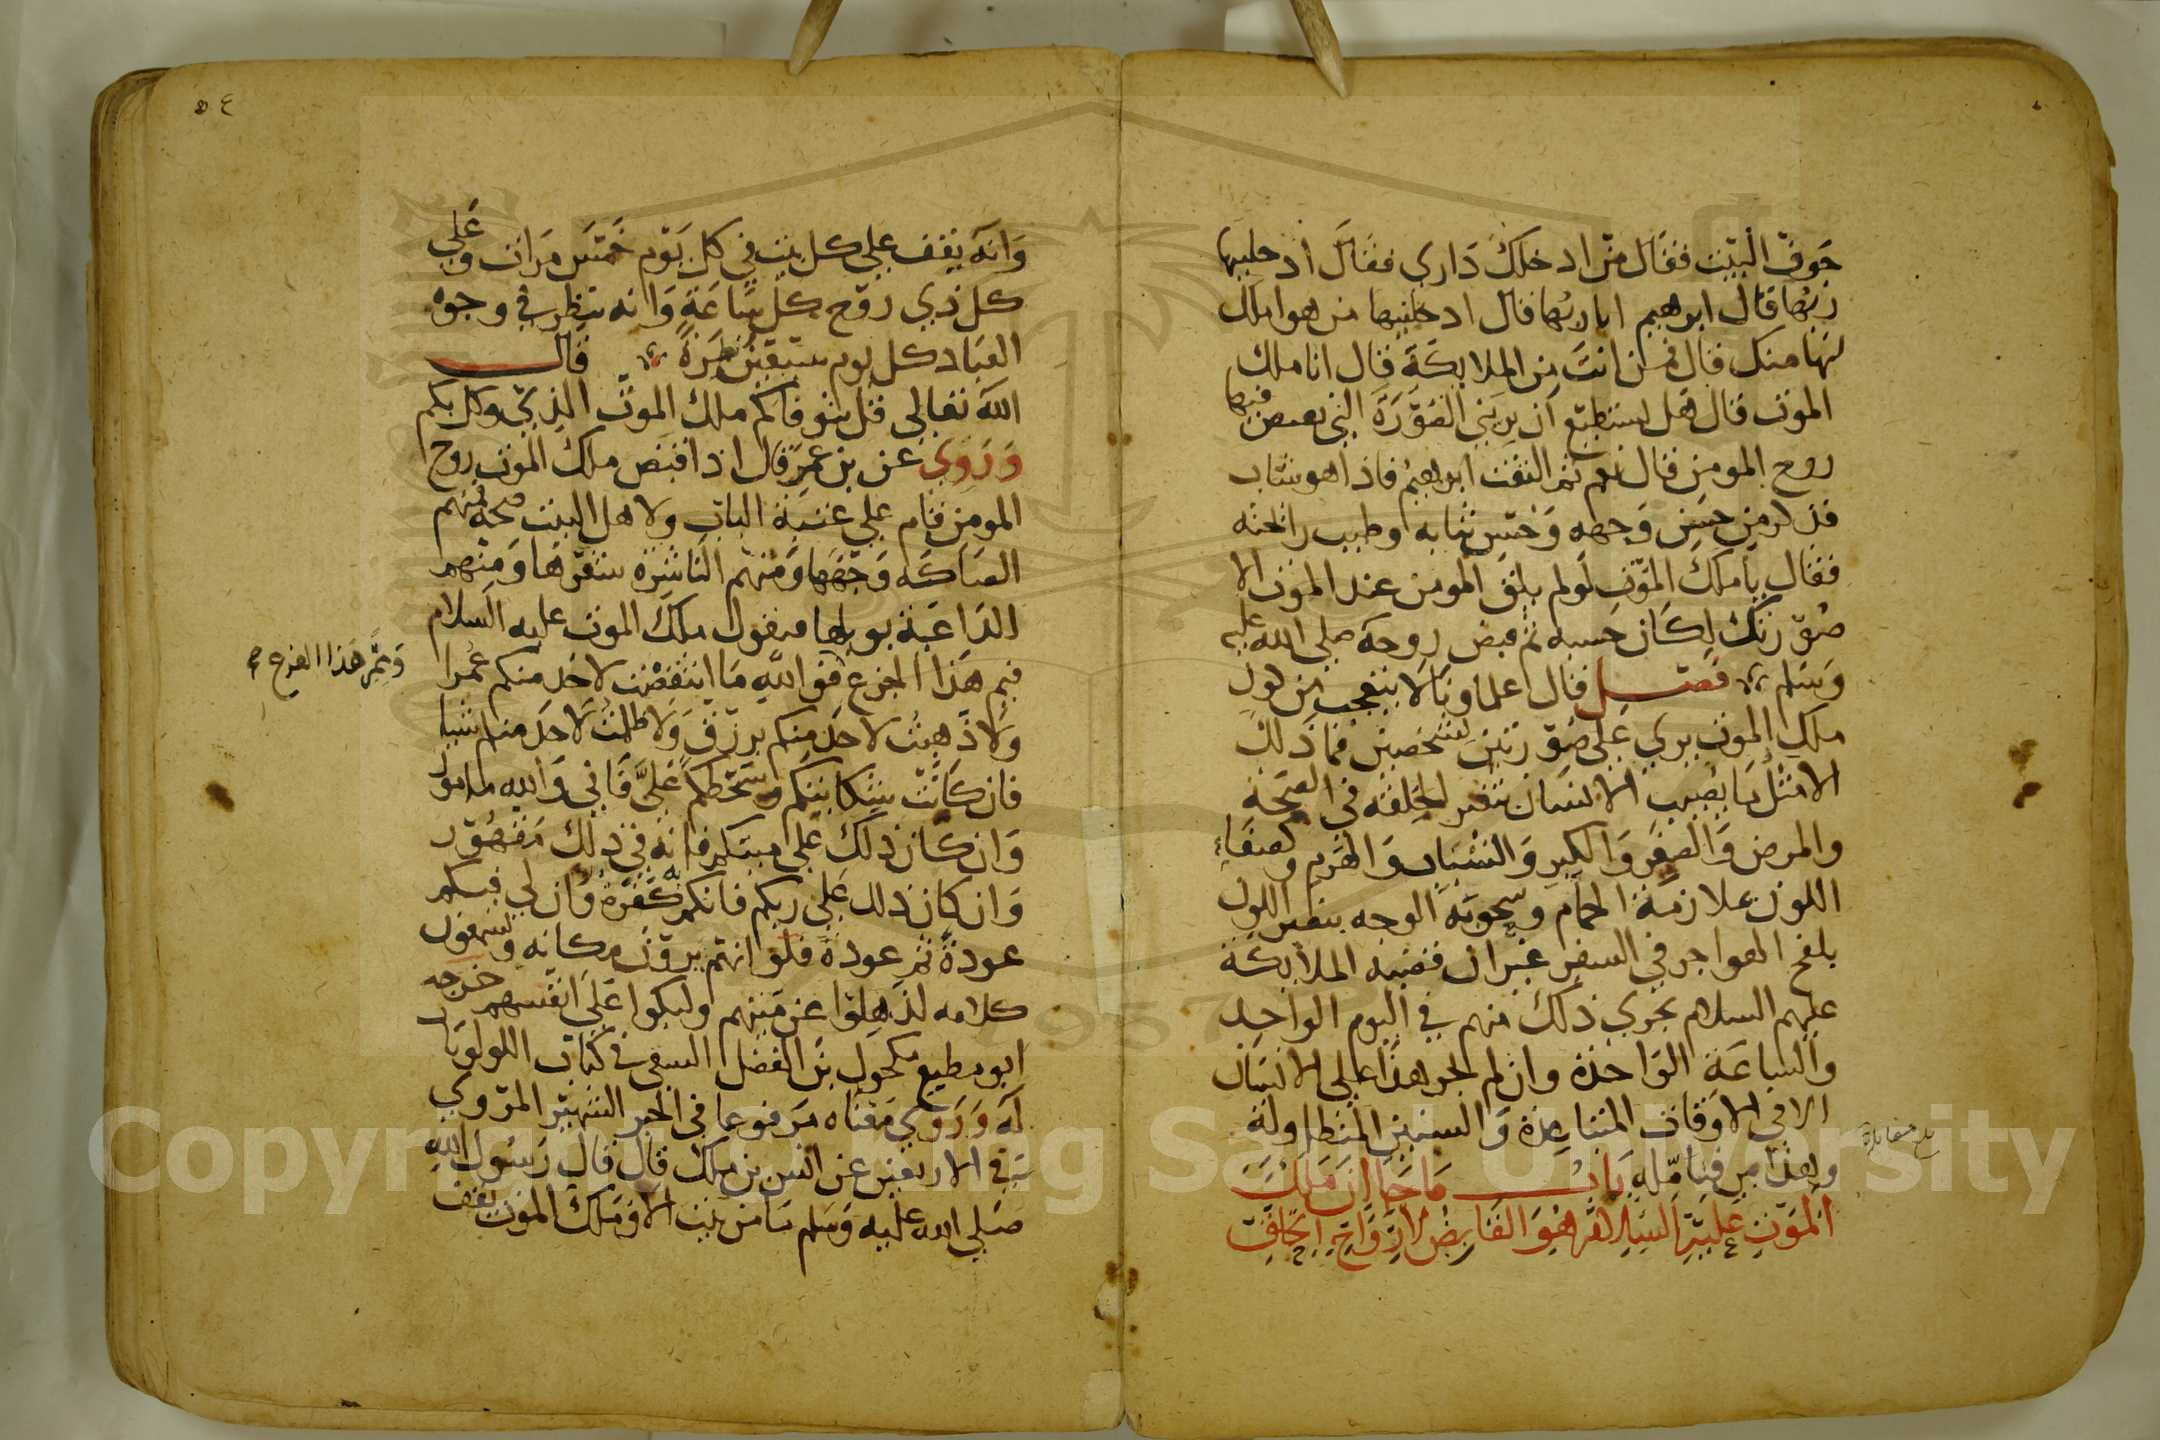 جوف البيت فقال من ادخلك داري فقال ادخلنيها
ربها قال ابرهيم انا ربها قال ادخلنيها من هو املك
لها منك قال فمن انت من الملايكة قال انا ملك
الموت قال هل تستطيع ان تريني الصورة التي تقبض فيها
روح المومن قال نعم ثم التفت ابرهيم فاذا هو شاب
فذكر من حسن وجهه وحسن ثيابه وطيب رائحته
فقال يا ملك الموت لو لم يلق المومن عند الموت الا
صورتك لكان حسبه ثم قبض روحه صلى الله عليه
وسلم فصل قال علماونا لا يتعجب من كون
ملك الموت يرى على صورتين لشخصين فما ذلك
الا مثل ما يصيب الانسان بتغير الخلقة في الصحة
والمرض والصغر والكبر والشباب والهرم وكصفاء
اللون بملازمة الحمام وسحوبة الوجه بتغير اللون
بلفح الهواجر في السفر غير ان قضية الملايكة
عليهم السلام يجري ذلك منهم في اليوم الواحد
والساعة الواحدة وان لم يجر هذا على الانسان
الا في الاوقات المتباعدة والسنين المتطاولة
وهذا بين فتامله باب ما جا ان ملك
الموت عليه السلام هو القابض لارواح الخلق
بلغ مقابلة
٥٤
وانه يقف على كل بيت في كل يوم خمس مرات وعلى
كل ذي روح كل ساعة وانه ينظر في وجوه
العباد كل يوم سبعين نظرة قال
الله تعالى قل يتوفاكم ملك الموت الذي وكل بكم
وروي عن بن عمر قال اذا قبض ملك الموت روح
المومن قام على عتبة الباب ولاهل البيت ضجة فمنهم
الصاكة وجهها ومنهم الناشرة شعرها ومنهم
الداعية بويلها فيقول ملك الموت عليه السلام
فيم هذا الجزع فو الله ما انتقصت لاحد منكم عمرا
ولا ذهبت لاحد منكم برزق ولا ظلمت لاحد منكم شيا
فان كانت شكايتكم وسخطكم علي فاني والله مامور
وان كان ذلك على ميتكم فانه في ذلك مقهور
وان كان ذلك على ربكم فانكم به كفرة وان لي فيكم
عودة ثم عودة فلو انهم يرون مكانه ويسمعون
كلامه لذهلوا عن ميتهم ولبكوا على انفسهم خرجه
ابو مطيع مكحول بن الفضل النسفي في كتاب اللولويات
له وروي معناه مرفوعا في الخبر الشهير المروي
في الاربعين عن انس بن ملك قال قال رسول الله
صلى الله عليه وسلم ما من بيت الا وملك الموت يقف
ومم هذا الفزع صح
Copyright © King Saud University
1957